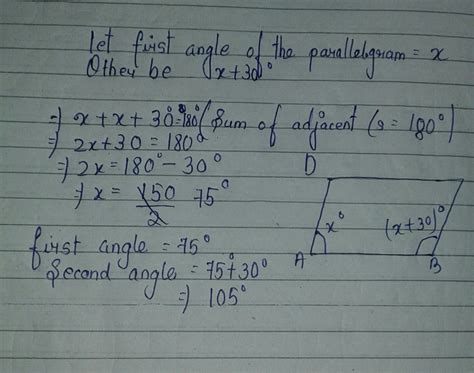 let first angle of the parallelogram = x
Other be x+30°
⇒ x + x + 30° = 180° (Sum of adjacent (s = 180°)
⇒ 2x+30 = 180°
⇒ 2x = 180° - 30°
⇒ x = 150/2 75°
D
x°
(x+30)°
A
B
first angle = 75°
Second angle = 75°+30°
⇒ 105°